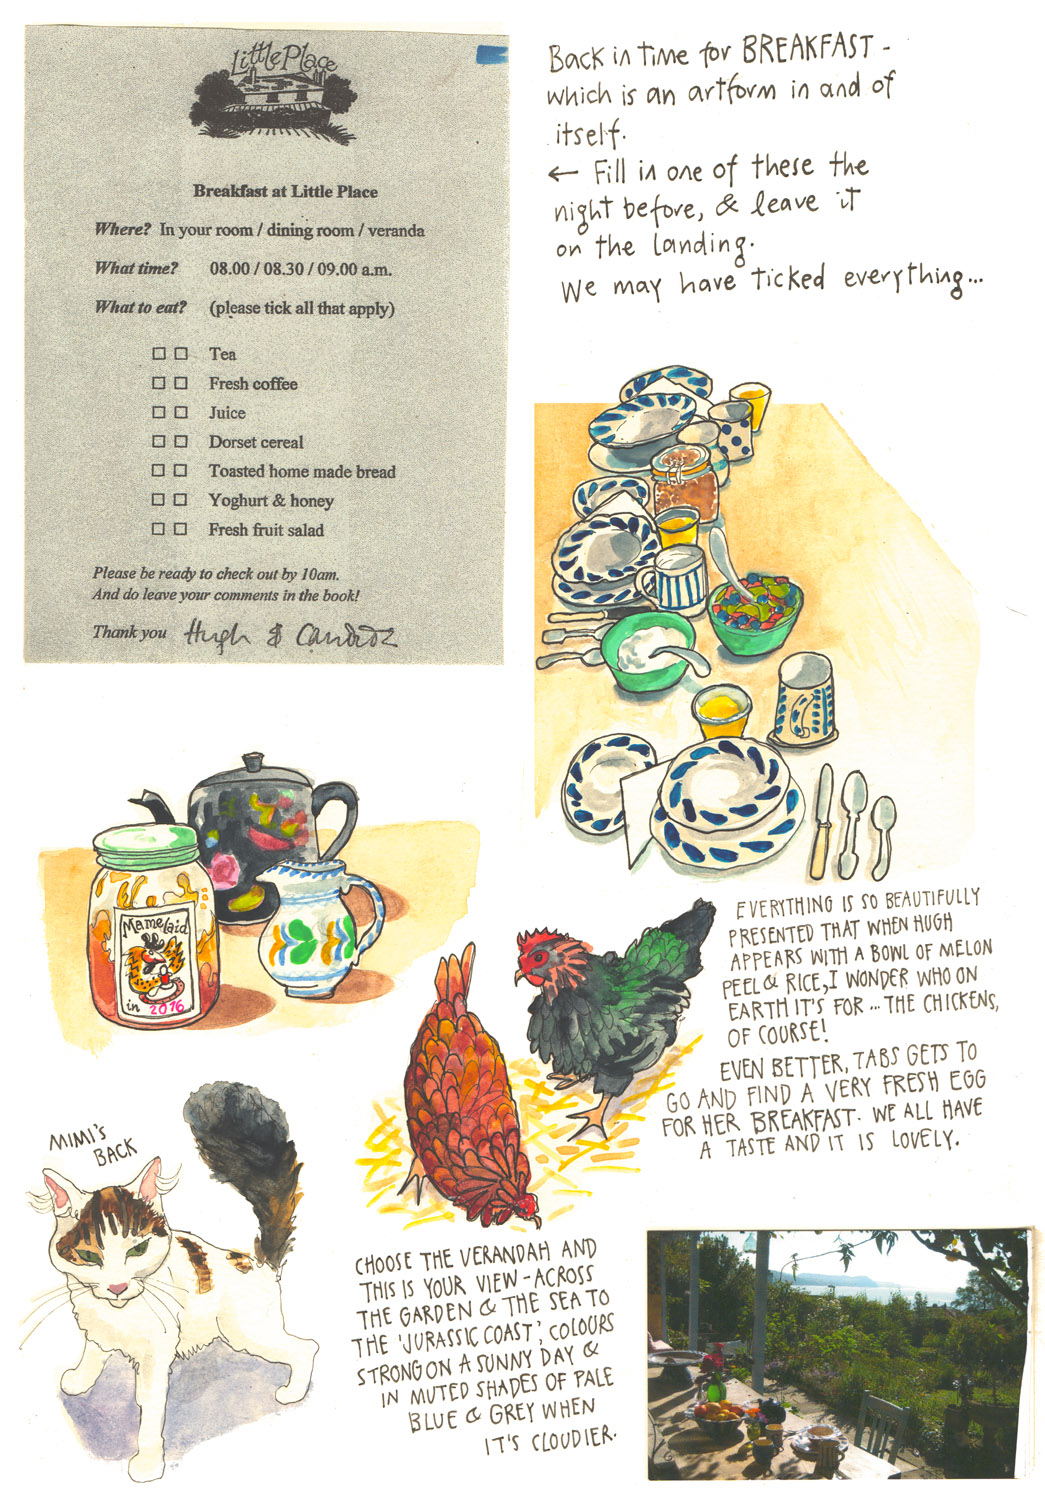 Little Place
Breakfast at Little Place
Where? In your room / dining room / veranda
What time? 08.00 / 08.30 / 09.00 a.m.
What to eat? (please tick all that apply)
Tea
Fresh coffee
Juice
Dorset cereal
Toasted home made bread
Yoghurt & honey
Fresh fruit salad
Please be ready to check out by 10am.
And do leave your comments in the book!
Thank you Hugh &
Back in time for BREAKFAST -
which is an artform in and of
itself.
← Fill in one of these the
night before, & leave it
on the landing.
We may have ticked everything...
Mamelaid
in 2016
EVERYTHING IS SO BEAUTIFULLY
PRESENTED THAT WHEN HUGH
APPEARS WITH A BOWL OF MELON
PEEL & RICE, I WONDER WHO ON
EARTH IT'S FOR ... THE CHICKENS,
OF COURSE!
EVEN BETTER, TABS GETS TO
GO AND FIND A VERY FRESH EGG
FOR HER BREAKFAST. WE ALL HAVE
A TASTE AND IT IS LOVELY.
MIMI'S
BACK
CHOOSE THE VERANDAH AND
THIS IS YOUR VIEW - ACROSS
THE GARDEN & THE SEA TO
THE 'JURASSIC COAST', COLOURS
STRONG ON A SUNNY DAY &
IN MUTED SHADES OF PALE
BLUE & GREY WHEN
IT'S CLOUDIER.